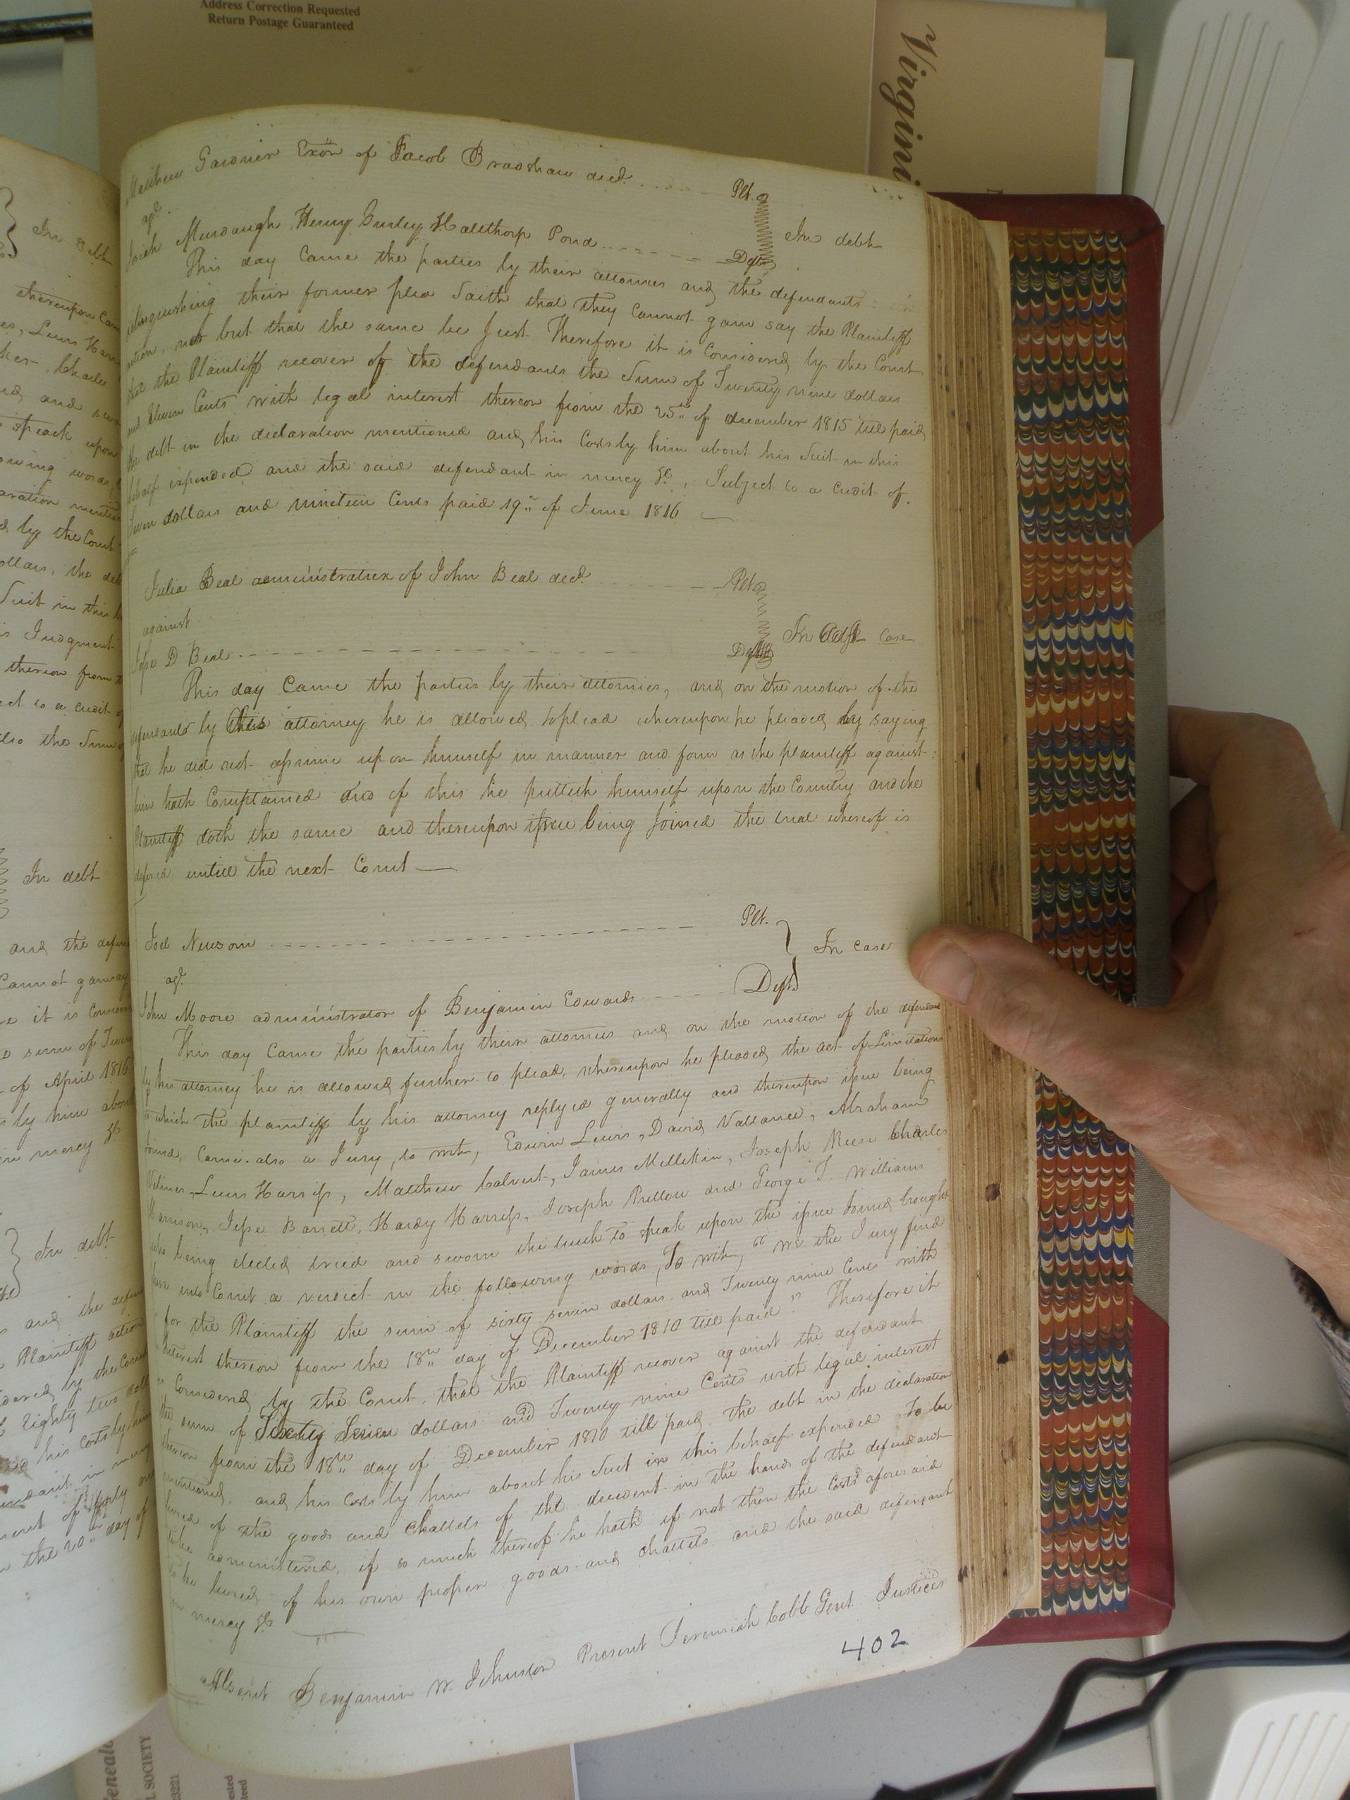 Address Correction Requested
Return Postage Guaranteed
Virgini
Matthew Gardner Exōr of Jacob Bradshaw decd. Plt.
agt.
Murdaugh Henry Gurley Halthorp Pond Dfts
In debt
This day Came the parties by their attornies and the defendants
relinquishing their former plea Saith that they Cannot gain say the Plaintiff
action, nor but that the same be Just Therefore it is Considered by the Court
that the Plaintiff recover of the defendants the Sum of Twenty nine dollars
and Eleven Cents with legal interest thereon from the 25th of december 1815 till paid
the debt in the declaration mentioned and his Costs by him about his Suit in this
behalf expended, and the said defendant in mercy &c, Subject to a credit of
Seven dollars and nineteen Cents paid 19th of June 1816
Julia Beal administratrix of John Beal decd. Plt.
against
Jesse D Beal Dft
In case
This day Came the parties by their attornies, and on the motion of the
defendants by this attorney he is allowed to plead whereupon he pleaded by saying
that he did not assume upon himself in manner and form as the plaintiff against
him hath Complained and of this he putteth himself upon the Country and the
Plaintiff doth the same and thereupon issue being Joined the trial whereof is
defered untill the next Court
Joel Newsom Plt.
agt.
John Moore administrator of Benjamin Edwards Deft
In case
This day Came the parties by their attornies and on the motion of the defendant
by his attorney he is allowed further to plead, whereupon he pleaded the act of Limitations
to which the plaintiff by his attorney replyed generally and thereupon issue being
Joined, Came also a Jury, to wit, Edwin Lewis, David Vallance, Abraham
Lewis Harriss, Matthew Calvert, James Millikin, Joseph Reese Charles
Harrison, Jesse Barrett, Hardy Harriss, Joseph Pretlow and George T. Williams
who being elected tried and sworn the truth to speak upon the issue Joined brought
here into Court a verdict in the following words, To wit, "We the Jury find
for the Plaintiff the sum of sixty seven dollars and Twenty nine Cents with
Interest thereon from the 18th day of December 1810 till paid" Therefore it
is Considered by the Court, that the Plaintiff recover against the defendant
the sum of Seven dollars and Twenty nine Cents with legal interest
thereon from the 18th day of December 1810 till paid, the debt in the declaration
mentioned, and his costs by him about his Suit in this behalf expended To be
levied of the goods and Chattels of the decedent in the hands of the defendant
to be administered, if so much thereof he hath if not then the Costs aforesaid
to be levied of his own proper goods and chattels and the said defendant
in mercy &c
Absent Benjamin W. Johnston Present Jeremiah Cobb Gent. Justices
402
In debt
thereupon Came
Lewis Harr
Charles
and
speak upon
words
by the Court
Suit in this
Judgment
thereon from
to a credit
the Sum
In debt
and the defen
Cannot gainsay
it is Consid
sum of Twen
of April 1816
by him about
mercy &c
In debt
and the defen
Plaintiff action
by the Court
Eighty two doll
his costs by him
in mercy
the 20th day of
SOCIETY